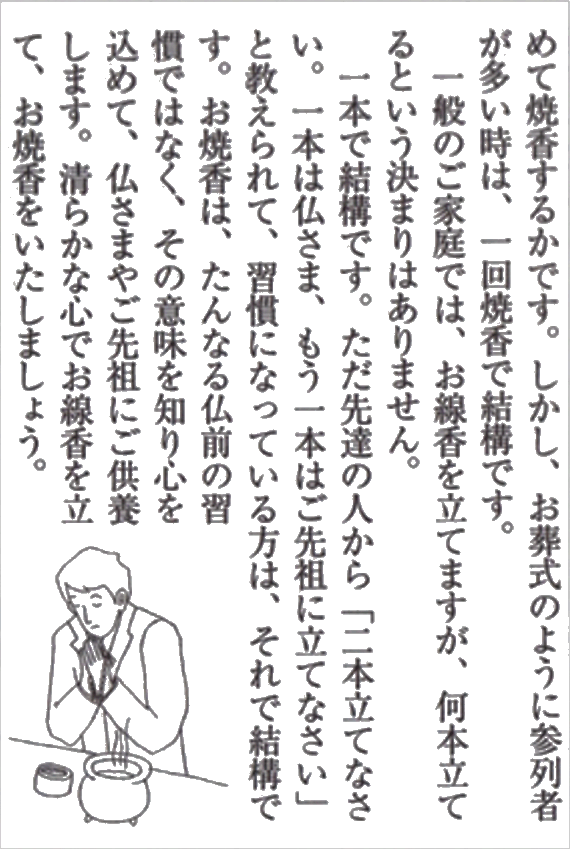 めて焼香するかです。しかし、お葬式のように参列者
が多い時は、一回焼香で結構です。
一般のご家庭では、お線香を立てますが、何本立て
るという決まりはありません。
一本で結構です。ただ先達の人から「二本立てなさ
い。一本は仏さま、もう一本はご先祖に立てなさい」
と教えられて、習慣になっている方は、それで結構で
す。お焼香は、たんなる仏前の習
慣ではなく、その意味を知り心を
込めて、仏さまやご先祖にご供養
します。清らかな心でお線香を立
て、お焼香をいたしましょう。